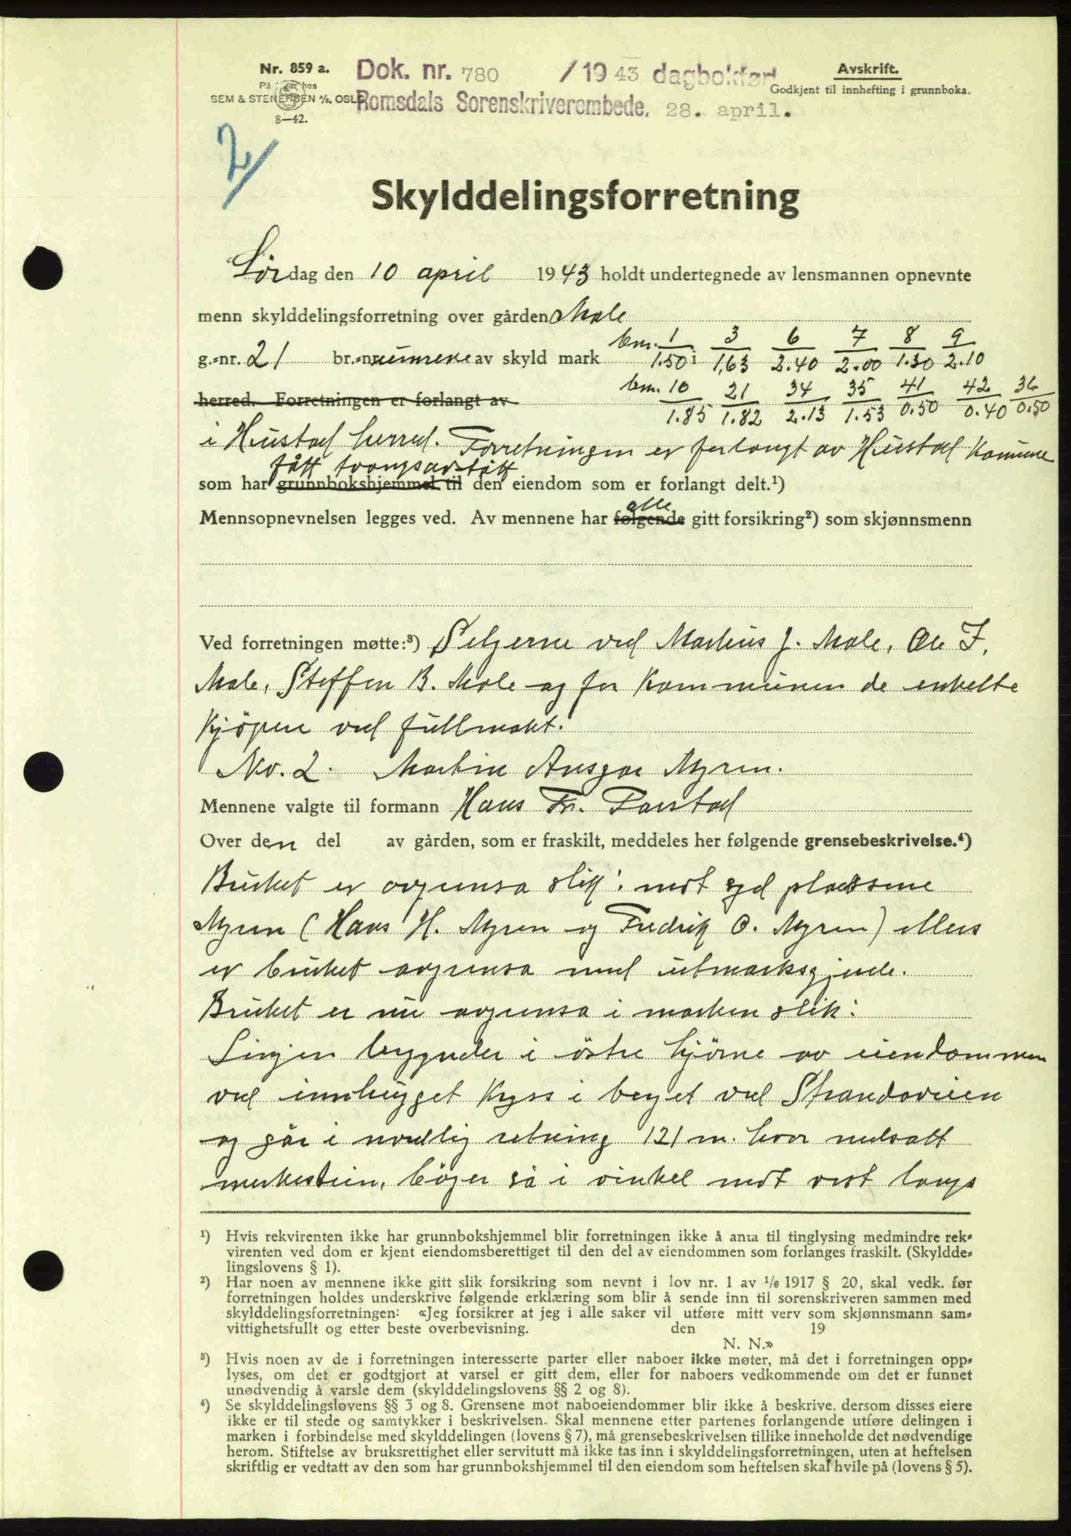 Nr. 859 a.
På lager hos
SEM & STENERSEN A/S, OSLO
8—42.
Dok. nr. 780 /1943 dagbokført
Romsdals Sorenskriverembede, 28. april.
Avskrift.
Godkjent til innhefting i grunnboka.
2/
Skylddelingsforretning
Lørdag den 10 april 1943 holdt undertegnede av lensmannen opnevnte
menn skylddelingsforretning over gården Male
g.-nr. 21 br.-nummerene av skyld mark bnr. 1/1.50 i 3/1,63 6/2.40 7/2.00 8/1.30 9/2.10
herred. Forretningen er forlangt av bnr. 10/1.85 21/1.82 34/2.13 35/1.53 41/0.50 42/0.40 36/0.50
i Hustad herred. Forretningen er forlangt av Hustad Komune
fått tvangsavstått
som har grunnbokshjemmel til den eiendom som er forlangt delt.¹)
alle
Mennsopnevnelsen legges ved. Av mennene har følgende gitt forsikring²) som skjønnsmenn
Ved forretningen møtte:³) Selgerne ved Martinus J. Male, Ole F.
Male, Steffen B. Male og for Kommunen de enkelte
kjöpere ved fullmakt.
No. 2. Martin Ansgar Myren.
Mennene valgte til formann Hans Fr. Farstad
Over den del av gården, som er fraskilt, meddeles her følgende grensebeskrivelse.⁴)
Bruket er avgrensa slik: mot syd plassene
Myren (Hans H. Myren og Fredrik O. Myren) ellers
er bruket avgrensa med utmarksgjerde.
Bruket er nu avgrensa i marken slik:
Linjen begynder i östre hjörne av eiendommen
ved innhugget kryss i berget ved Strandaveien
og går i nordlig retning 121 m. hvor nedsatt
merkestein, böyer så i vinkel mot vest langs
¹) Hvis rekvirenten ikke har grunnbokshjemmel blir forretningen ikke å anta til tinglysing medmindre rek-
virenten ved dom er kjent eiendomsberettiget til den del av eiendommen som forlanges fraskilt. (Skyldde-
lingslovens § 1).
²) Har noen av mennene ikke gitt slik forsikring som nevnt i lov nr. 1 av 1/6 1917 § 20, skal vedk. før
forretningen holdes underskrive følgende erklæring som blir å sende inn til sorenskriveren sammen med
skylddelingsforretningen: «Jeg forsikrer at jeg i alle saker vil utføre mitt verv som skjønnsmann sam-
vittighetsfullt og etter beste overbevisning. den 19
N. N.»
³) Hvis noen av de i forretningen interesserte parter eller naboer ikke møter, må det i forretningen opp-
lyses, om det er godtgjort at varsel er gitt dem, eller for naboers vedkommende om det er funnet
unødvendig å varsle dem (skylddelingslovens §§ 2 og 8).
⁴) Se skylddelingslovens §§ 3 og 8. Grensene mot naboeiendommer blir ikke å beskrive, dersom disses eiere
ikke er til stede og samtykker i beskrivelsen. Skal mennene etter partenes forlangende utføre delingen i
marken i forbindelse med skylddelingen (lovens § 7), må grensebeskrivelsen tillike inneholde det nødvendige
herom. Stiftelse av bruksrettighet eller servitutt må ikke tas inn i skylddelingsforretningen, uten at heftelsen
skriftlig er vedtatt av den som har grunnbokshjemmel til den eiendom som heftelsen skal hvile på (lovens § 5).